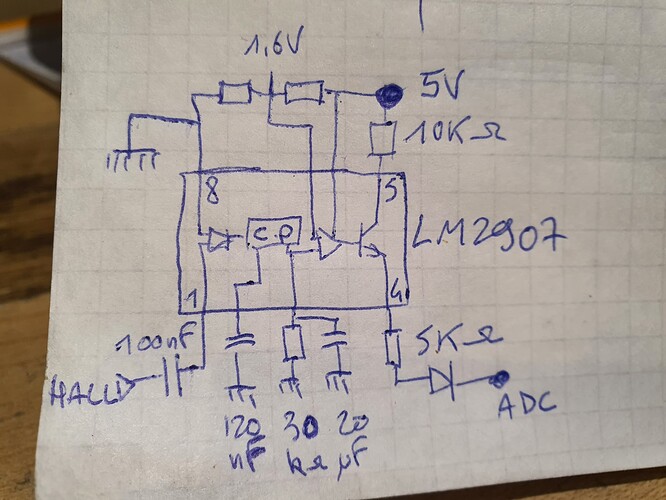 1,6V
5V
10KΩ
8
5
C.P
LM2907
1
4
100nF
5KΩ
HALL
ADC
120 30 20
nF kΩ μF